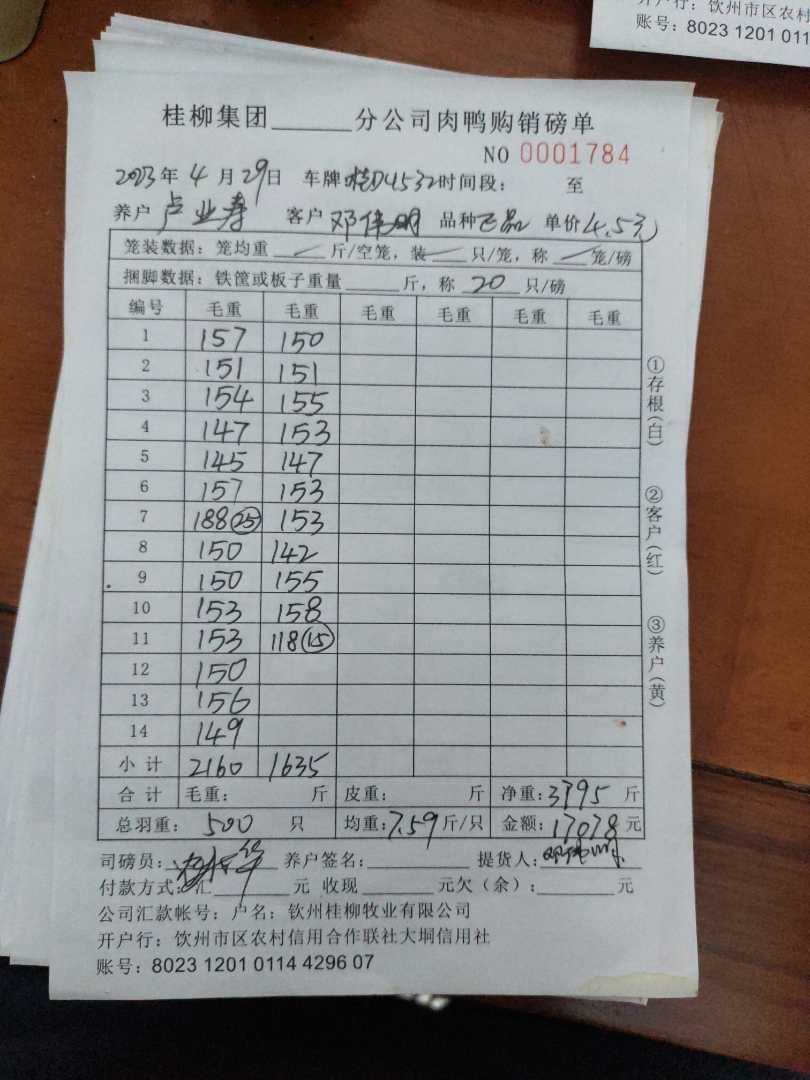 开户行：饮州市区农村
账号：8023 1201 011
桂柳集团______分公司肉鸭购销磅单
NO 0001784
2023年 4 月 29日 车牌 桂D4532 时间段： 至
养户 卢业寿 客户 邓伟明 品种 正品 单价 4.5元
笼装数据：笼均重 ___ 斤/空笼，装 ___ 只/笼，称 ___ 笼/磅
捆脚数据：铁筐或板子重量 ___ 斤，称 20 只/磅
编号 毛重 毛重 毛重 毛重 毛重 毛重
1 157 150
2 151 151
3 154 155
4 147 153
5 145 147
6 157 153
7 188 (25) 153
8 150 142
9 150 155
10 153 158
11 153 118 (15)
12 150
13 156
14 149
小计 2160 1635
合计 毛重： 斤 皮重： 斤 净重：3795 斤
总羽重： 500 只 均重：7.59 斤/只 金额：17078 元
司磅员： 养户签名：______ 提货人：邓伟明
付款方式：汇______元 收现______元欠（余）：______元
公司汇款帐号：户名：钦州桂柳牧业有限公司
开户行：饮州市区农村信用合作联社大垌信用社
账号：8023 1201 0114 4296 07
①存根(白)
②客户(红)
③养户(黄)